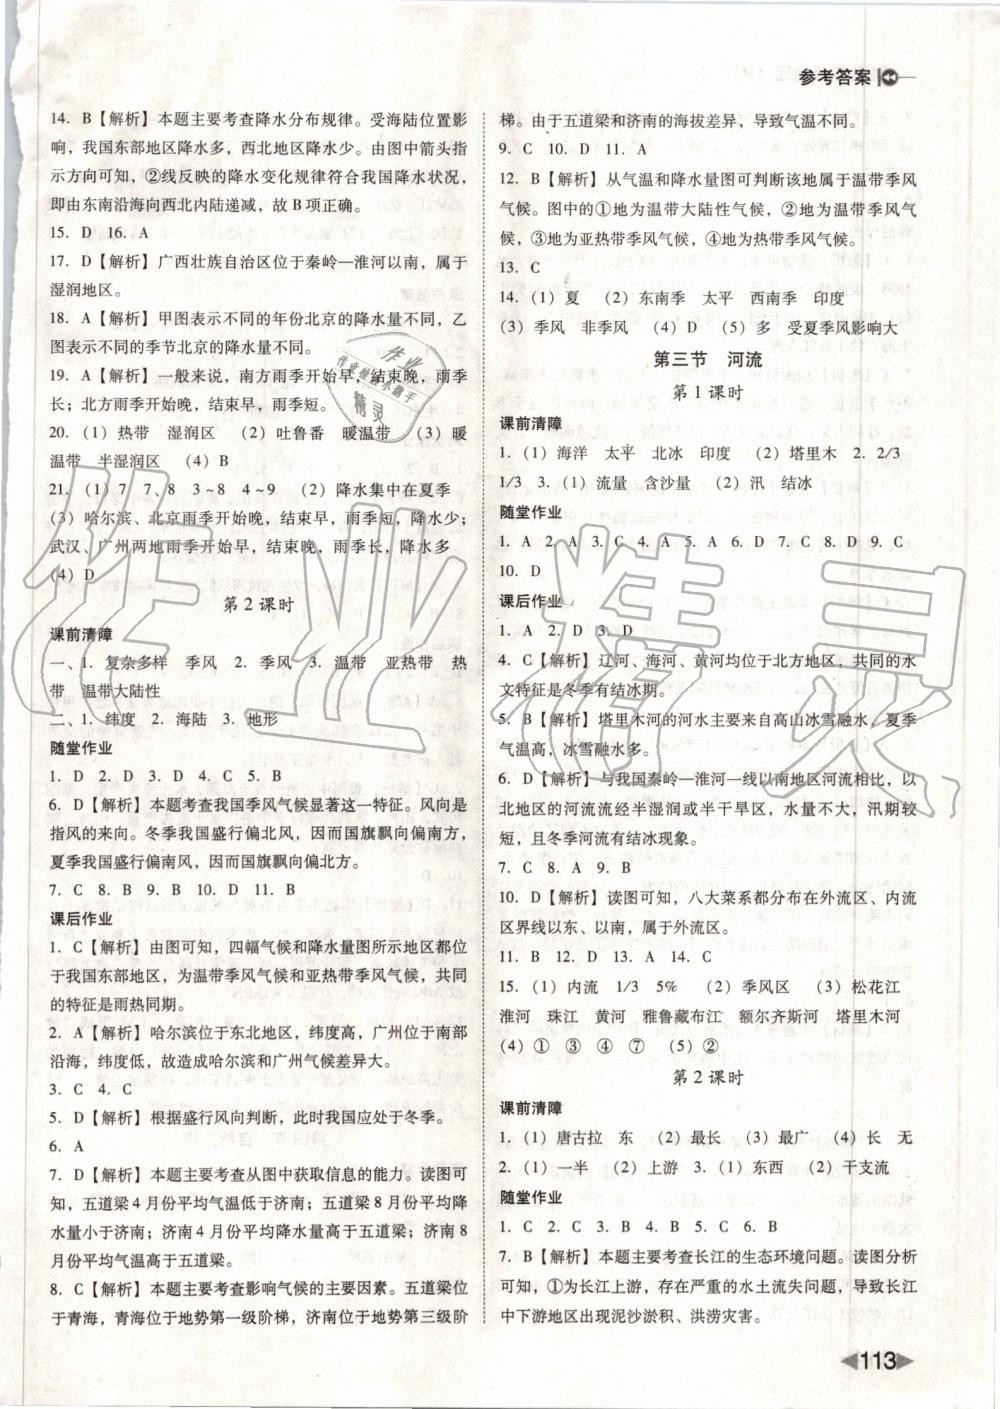 参考答案
14. B【解析】本题主要考查降水分布规律。受海陆位置影
响，我国东部地区降水多，西北地区降水少。由图中箭头指
示方向可知，②线反映的降水变化规律符合我国降水状况，
即由东南沿海向西北内陆递减，故B项正确。
15. D 16. A
17. D【解析】广西壮族自治区位于秦岭—淮河以南，属于
湿润地区。
18. A【解析】甲图表示不同的年份北京的降水量不同，乙
图表示不同的季节北京的降水量不同。
19. A【解析】一般来说，南方雨季开始早，结束晚，雨季
长；北方雨季开始晚，结束早，雨季短。
20. （1）热带 湿润区 （2）吐鲁番 暖温带 （3）暖
温带 半湿润区 （4）B
21. （1）7 7、8 3~8 4~9 （2）降水集中在夏季
（3）哈尔滨、北京雨季开始晚，结束早，雨季短，降水少；
武汉、广州两地雨季开始早，结束晚，雨季长，降水多
（4）D
第2课时
课前清障
一、1. 复杂多样 季风 2. 季风 3. 温带 亚热带 热
带 温带大陆性
二、1. 纬度 2. 海陆 3. 地形
随堂作业
1. D 2. D 3. D 4. C 5. B
6. D【解析】本题考查我国季风气候显著这一特征。风向是
指风的来向。冬季我国盛行偏北风，因而国旗飘向偏南方，
夏季我国盛行偏南风，因而国旗飘向偏北方。
7. C 8. B 9. B 10. D 11. B
课后作业
1. C【解析】由图可知，四幅气候和降水量图所示地区都位
于我国东部地区，为温带季风气候和亚热带季风气候，共同
的特征是雨热同期。
2. A【解析】哈尔滨位于东北地区，纬度高，广州位于南部
沿海，纬度低，故造成哈尔滨和广州气候差异大。
3. C 4. C
5. D【解析】根据盛行风向判断，此时我国应处于冬季。
6. A
7. D【解析】本题主要考查从图中获取信息的能力。读图可
知，五道梁4月份平均气温低于济南；五道梁8月份平均降
水量小于济南；济南4月份平均降水量高于五道梁；济南8
月份平均气温高于五道梁。
8. C【解析】本题主要考查影响气候的主要因素。五道梁位
于青海，青海位于地势第一级阶梯，济南位于地势第三级阶
梯。由于五道梁和济南的海拔差异，导致气温不同。
9. C 10. D 11. A
12. B【解析】从气温和降水量图可判断该地属于温带季风
气候。图中的①地为温带大陆性气候，②地为温带季风气
候，③地为亚热带季风气候，④地为热带季风气候。
13. C
14. （1）夏 （2）东南季 太平 西南季 印度
（3）季风 非季风 （4）D （5）多 受夏季风影响大
第三节 河流
第1课时
课前清障
1. （1）海洋 太平 北冰 印度 （2）塔里木 2. 2/3
1/3 3. （1）流量 含沙量 （2）汛 结冰
随堂作业
1. A 2. A 3. C 4. A 5. A 6. D 7. C 8. D 9. C
10. D
课后作业
1. A 2. D 3. D
4. C【解析】辽河、海河、黄河均位于北方地区，共同的水
文特征是冬季有结冰期。
5. B【解析】塔里木河的河水主要来自高山冰雪融水，夏季
气温高，冰雪融水多。
6. D【解析】与我国秦岭—淮河一线以南地区河流相比，以
北地区的河流流经半湿润或半干旱区，水量不大，汛期较
短，且冬季河流有结冰现象。
7. C 8. A 9. B
10. D【解析】读图可知，八大菜系都分布在外流区、内流
区界线以东、以南，属于外流区。
11. B 12. D 13. A 14. C
15. （1）内流 1/3 5% （2）季风区 （3）松花江
淮河 珠江 黄河 雅鲁藏布江 额尔齐斯河 塔里木河
（4）① ③ ④ ⑦ （5）②
第2课时
课前清障
1. （1）唐古拉 东 （2）最长 （3）最广 （4）长 无
2. （1）一半 （2）上游 3. （1）东西 （2）干支流
随堂作业
1. C 2. C 3. B 4. B 5. C 6. B
7. B【解析】本题主要考查长江的生态环境问题。读图分析
可知，①为长江上游，存在严重的水土流失问题，导致长江
中下游地区出现泥沙淤积、洪涝灾害。
113
作业精灵